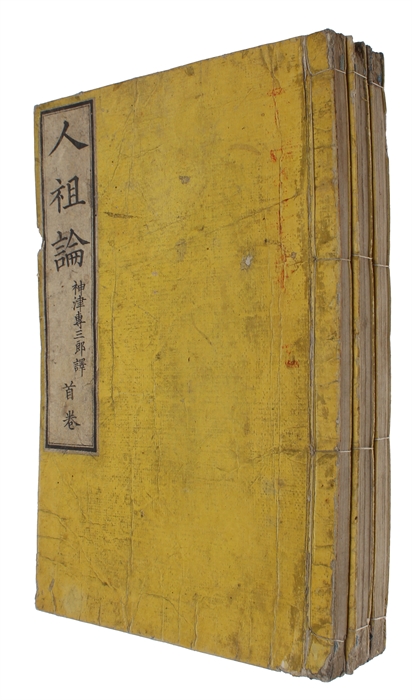 人祖論
神津専三郎譯
首卷